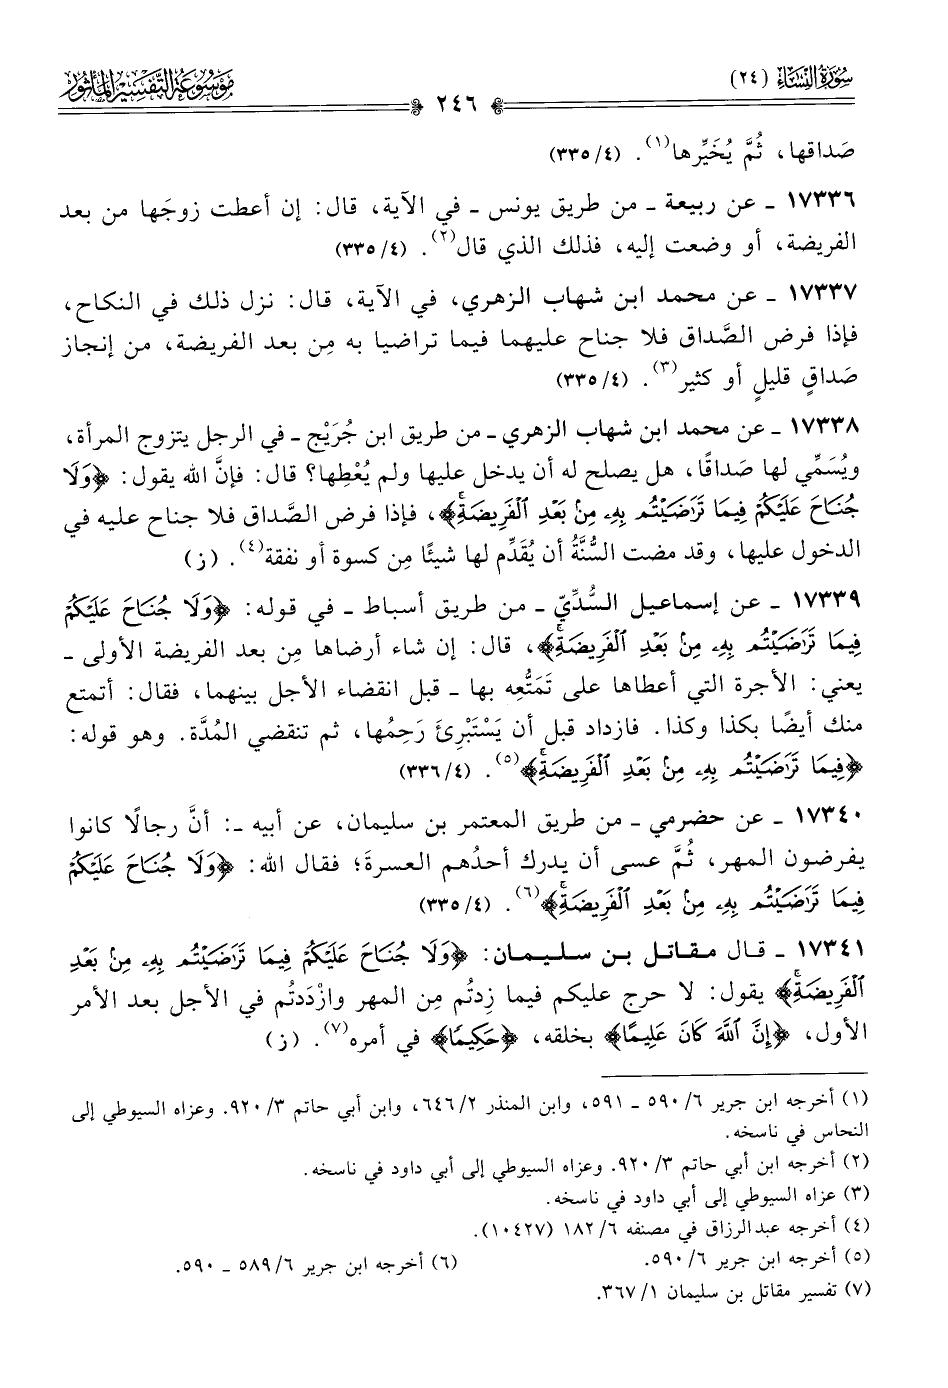 سُورَةُ النِّسَاءِ (٢٤)
٢٤٦
مَوْسُوعَةُ التَّفْسِيرِ المَأْثُور
صَداقها، ثُمَّ يُخَيِّرها(١). (٤/ ٣٣٥)
١٧٣٣٦ ـ عن ربيعة ـ من طريق يونس ـ في الآية، قال: إن أعطت زوجَها من بعد
الفريضة، أو وضعت إليه، فذلك الذي قال(٢). (٤/ ٣٣٥)
١٧٣٣٧ ـ عن محمد ابن شهاب الزهري، في الآية، قال: نزل ذلك في النكاح،
فإذا فرض الصَّداق فلا جناح عليهما فيما تراضيا به مِن بعد الفريضة، من إنجاز
صَداقٍ قليلٍ أو كثير(٣). (٤/ ٣٣٥)
١٧٣٣٨ ـ عن محمد ابن شهاب الزهري ـ من طريق ابن جُرَيْج ـ في الرجل يتزوج المرأة،
ويُسَمِّي لها صَداقًا، هل يصلح له أن يدخل عليها ولم يُعْطِها؟ قال: فإنَّ الله يقول: ﴿وَلَا
جُنَاحَ عَلَيْكُمْ فِيمَا تَرَٰضَيْتُم بِهِۦ مِنۢ بَعْدِ ٱلْفَرِيضَةِۚ﴾، فإذا فرض الصَّداق فلا جناح عليه في
الدخول عليها، وقد مضت السُّنَّةُ أن يُقَدِّم لها شيئًا مِن كسوة أو نفقة(٤). (ز)
١٧٣٣٩ ـ عن إسماعيل السُّدِّيّ ـ من طريق أسباط ـ في قوله: ﴿وَلَا جُنَاحَ عَلَيْكُمْ
فِيمَا تَرَٰضَيْتُم بِهِۦ مِنۢ بَعْدِ ٱلْفَرِيضَةِۚ﴾، قال: إن شاء أرضاها مِن بعد الفريضة الأولى ـ
يعني: الأجرة التي أعطاها على تَمَتُّعِه بها ـ قبل انقضاء الأجل بينهما، فقال: أتمتع
منك أيضًا بكذا وكذا. فازداد قبل أن يَسْتَبْرِئَ رَحِمُها، ثم تنقضي المُدَّة. وهو قوله:
﴿فِيمَا تَرَٰضَيْتُم بِهِۦ مِنۢ بَعْدِ ٱلْفَرِيضَةِۚ﴾(٥). (٤/ ٣٣٦)
١٧٣٤٠ ـ عن حضرمي ـ من طريق المعتمر بن سليمان، عن أبيه ـ: أنَّ رجالًا كانوا
يفرضون المهر، ثُمَّ عسى أن يدرك أحدُهم العسرةَ؛ فقال الله: ﴿وَلَا جُنَاحَ عَلَيْكُمْ
فِيمَا تَرَٰضَيْتُم بِهِۦ مِنۢ بَعْدِ ٱلْفَرِيضَةِۚ﴾(٦). (٤/ ٣٣٥)
١٧٣٤١ ـ قال مقاتل بن سليمان: ﴿وَلَا جُنَاحَ عَلَيْكُمْ فِيمَا تَرَٰضَيْتُم بِهِۦ مِنۢ بَعْدِ
ٱلْفَرِيضَةِۚ﴾ يقول: لا حرج عليكم فيما زِدتُم مِن المهر وازْدَدتُم في الأجل بعد الأمر
الأول، ﴿إِنَّ ٱللَّهَ كَانَ عَلِيمًا﴾ بخلقه، ﴿حَكِيمًا﴾ في أمره(٧). (ز)
(١) أخرجه ابن جرير ٦/ ٥٩٠ ـ ٥٩١، وابن المنذر ٢/ ٦٤٦، وابن أبي حاتم ٣/ ٩٢٠. وعزاه السيوطي إلى
النحاس في ناسخه.
(٢) أخرجه ابن أبي حاتم ٣/ ٩٢٠. وعزاه السيوطي إلى أبي داود في ناسخه.
(٣) عزاه السيوطي إلى أبي داود في ناسخه.
(٤) أخرجه عبدالرزاق في مصنفه ٦/ ١٨٢ (١٠٤٢٧).
(٥) أخرجه ابن جرير ٦/ ٥٩٠.
(٦) أخرجه ابن جرير ٦/ ٥٨٩ ـ ٥٩٠.
(٧) تفسير مقاتل بن سليمان ١/ ٣٦٧.